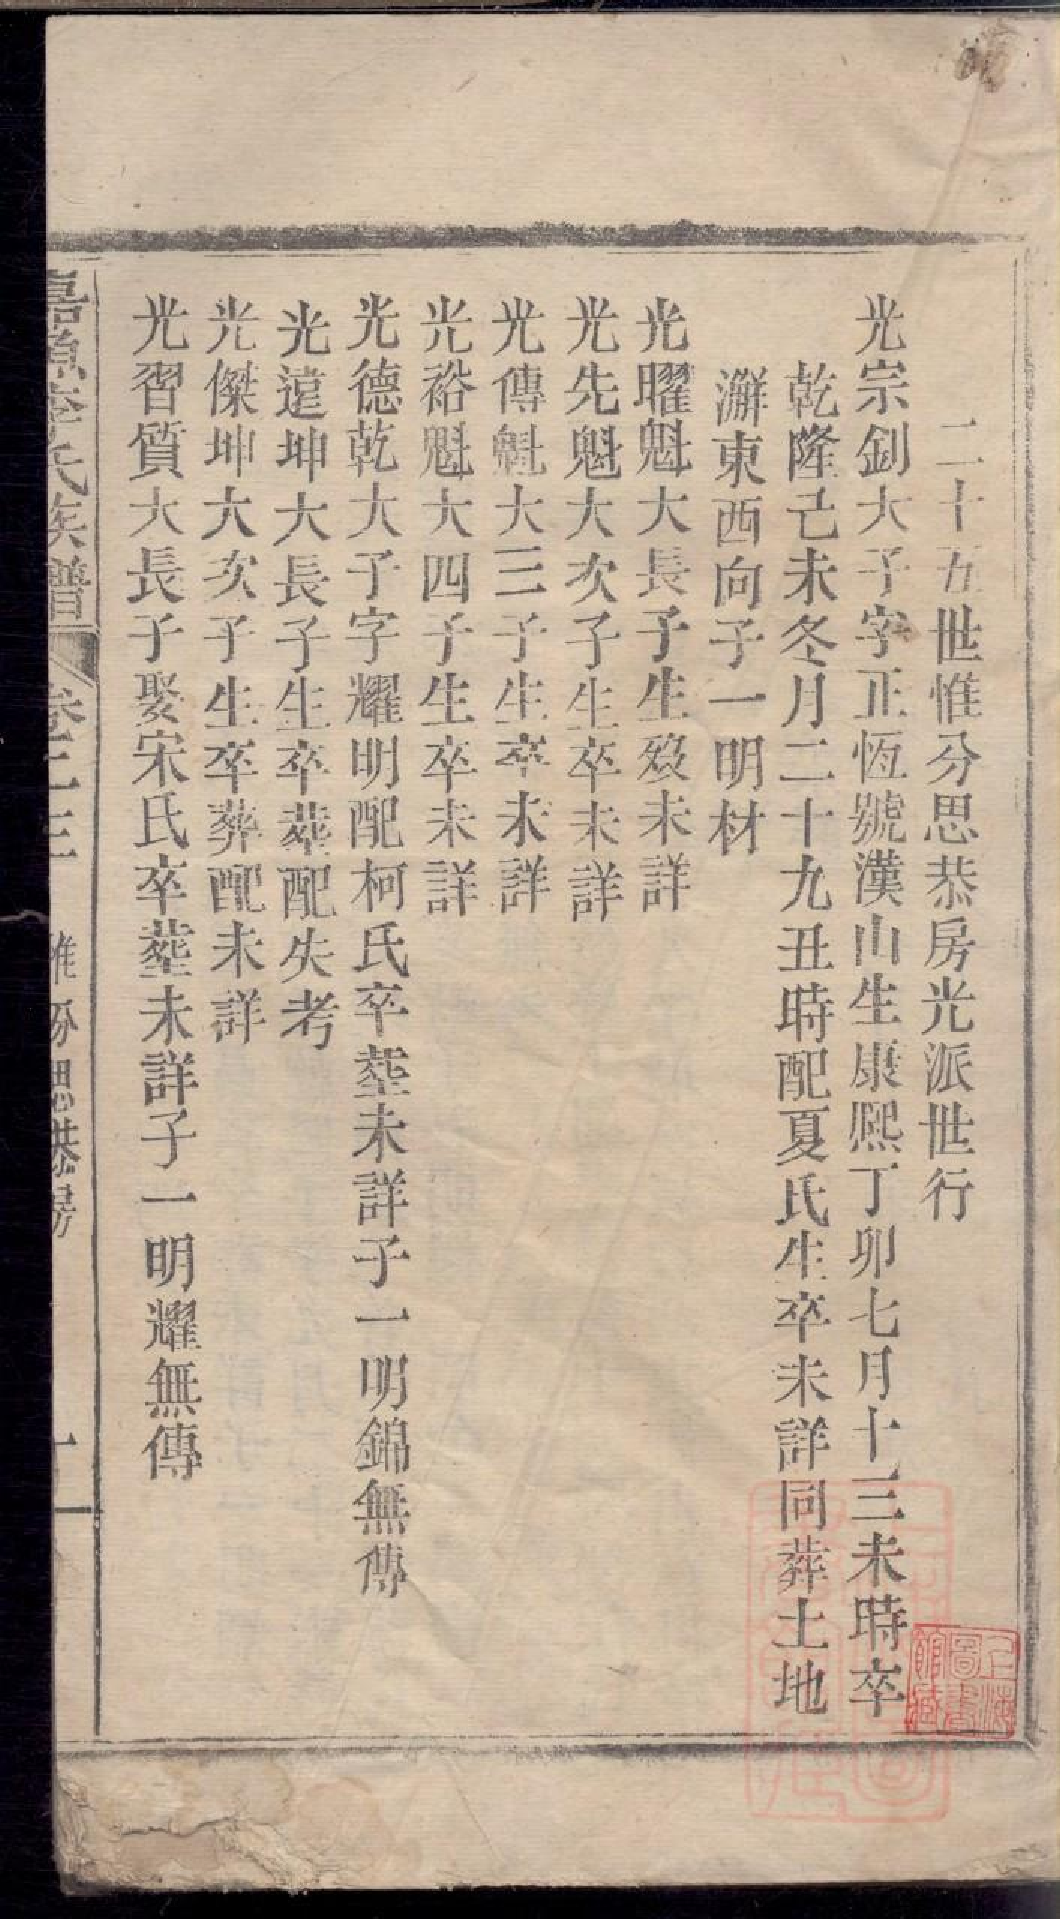 二十五世惟分思恭房光派世行
光宗釗大子字正恆號漢山生康熙丁卯七月十三未時卒
乾隆己未冬月二十九丑時配夏氏生卒未詳同葬土地
澥東西向子一明材
光曜魁大長子生歿未詳
光先魁大次子生卒未詳
光傳魁大三子生卒未詳
光裕魁大四子生卒未詳
光德乾大子字耀明配柯氏卒塟未詳子一明錦無傳
光遠坤大長子生卒葬配失考
光傑坤大次子生卒葬配未詳
光習質大長子娶宋氏卒塟未詳子一明耀無傳
李氏族譜
卷二三
惟分思恭房
十一
上海圖書館藏